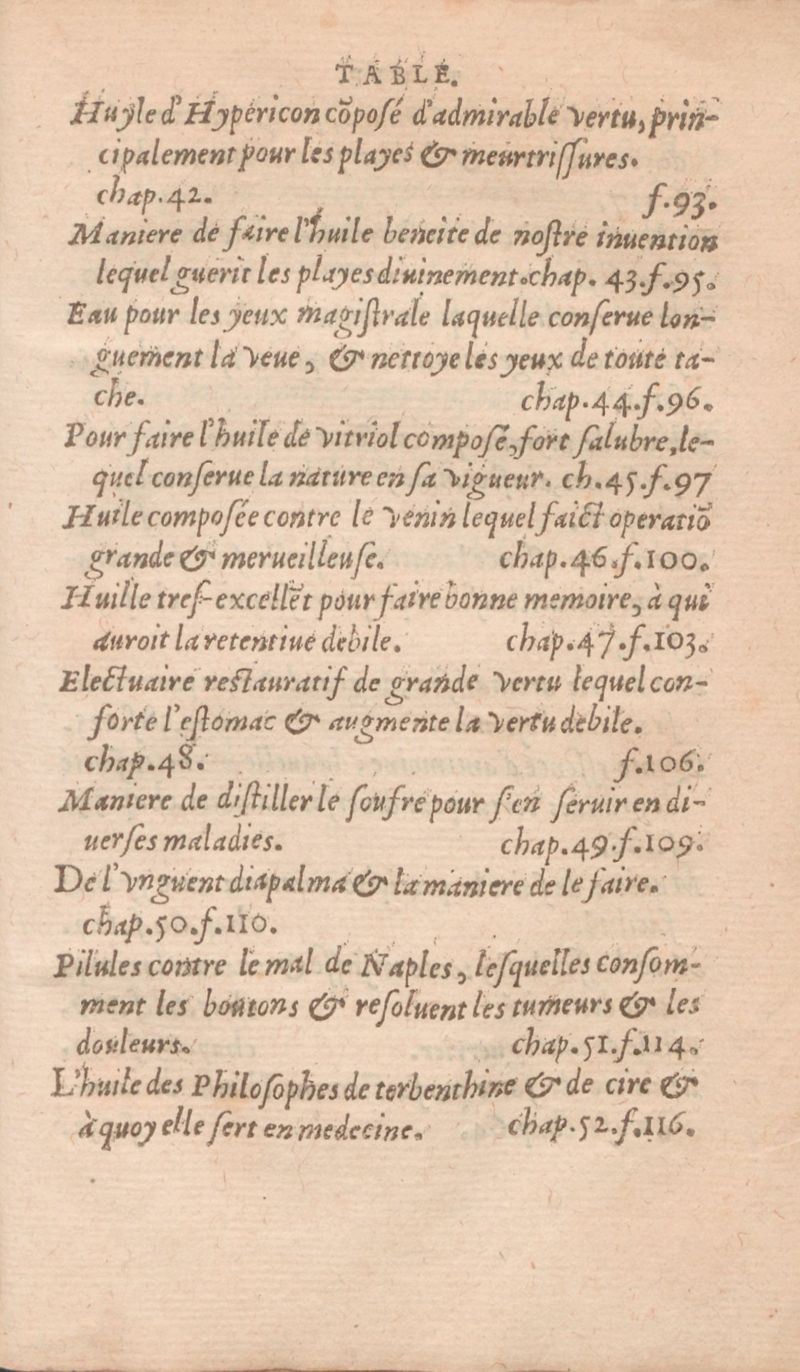 TABLE.
Huyle d'Hypericon cõposé d'admirable vertu, prin-
cipalement pour les playes & meurtrissures.
chap.42. f.93.
Maniere de faire l'huile beneite de nostre inuention
lequel guerit les playes diuinement.chap. 43.f.95.
Eau pour les yeux magistrale laquelle conserue lon-
guement la veue, & nettoye les yeux de toute ta-
che. chap.44.f.96.
Pour faire l'huile de vitriol composé, fort salubre, le-
quel conserue la nature en sa vigueur. ch.45.f.97
Huile composée contre le venin lequel faict operatiõ
grande & merueilleuse. chap.46.f.100.
Huille tres-excellẽt pour faire bonne memoire, à qui
auroit la retentiue debile. chap.47.f.103.
Electuaire restauratif de grande vertu lequel con-
forte l'estomac & augmente la vertu debile.
chap.48. f.106.
Maniere de distiller le soufre pour s'en seruir en di-
uerses maladies. chap.49.f.109.
De l'vnguent diapalma & la maniere de le faire.
chap.50.f.110.
Pilules contre le mal de Naples, lesquelles consom-
ment les boutons & resoluent les tumeurs & les
douleurs. chap.51.f.114.
L'huile des Philosophes de terbenthine & de cire &
à quoy elle sert en medecine. chap.52.f.116.